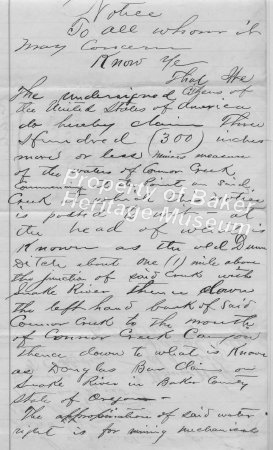 Notice
To all whom it
May Concern
Know Ye
That We
The undersigned Citizens of
the United States of America
do hereby claim Three
Hundred (300) inches
more or less miners measure
of the waters of Connor Creek
Commencing in said
Creek where this notice
is posted at
the head of what is
Known as the old Dam
Ditch about one (1) mile above
the junction of said Creek with
Snake River thence down
the left hand bank of said
Connor Creek to the mouth
of Connor Creek Canyon
thence down to what is Known
as Douglas Bar Claim on
Snake River in Baker County
State of Oregon
The appropriation of said water
right is for mining mechanical
Property of Baker
Heritage Museum